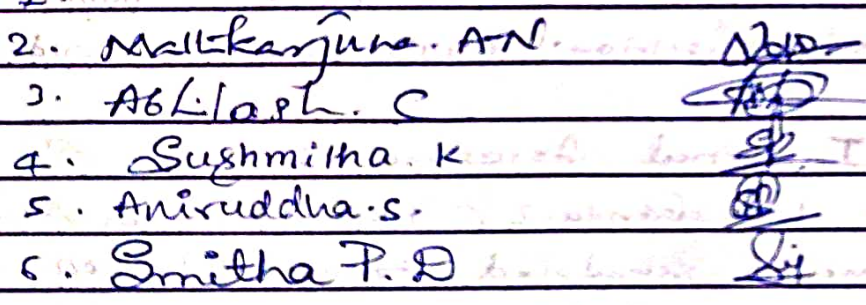 2. Mallikarjuna. A-N.
3. Abhilash. C
4. Sushmitha. K
5. Aniruddha.S.
6. Smitha P. D